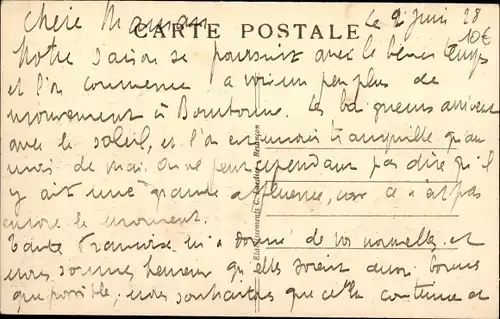 Chère Maman
CARTE POSTALE
Le 2 juin 28
10€
Notre saison se poursuit avec le beau temps
et l'on commence a voir un peu plus de
mouvement à Bourbonne. Les baigneurs arrivent
avec le soleil, et l'on est moins tranquille qu'au
mois de mai. On ne peut cependant pas dire qu'il
y ait une grande affluence, car ce n'est pas
encore le moment.
Tante Françoise m'a donné de vos nouvelles et
nous sommes heureux qu'elles soient aussi bonnes
que possible, nous souhaitons que cela continue et
Etablissements C. Besançon